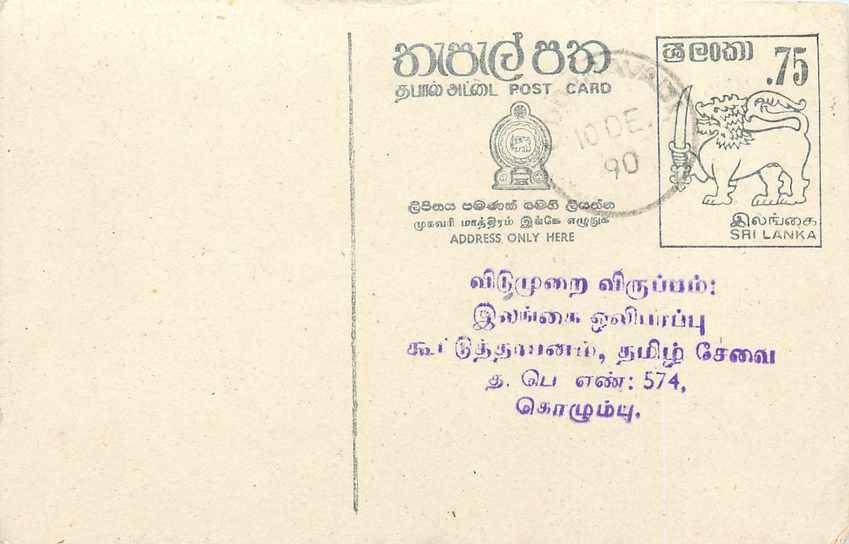 තැපැල් පත
தபால் அட்டை POST CARD
ලිපිනය පමණක් මෙහි ලියන්න
முகவரி மாத்திரம் இங்கே எழுதுக
ADDRESS ONLY HERE
ශ්‍රී ලංකා
.75
இலங்கை
SRI LANKA
10 DE.
90
விடுமுறை விருப்பம்:
இலங்கை ஒலிபரப்பு
கூட்டுத்தாபனம், தமிழ் சேவை
த. பெ எண்: 574,
கொழும்பு.